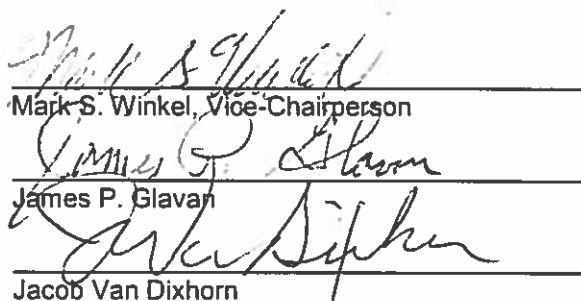 Mark S. Winkel
Mark S. Winkel, Vice-Chairperson
James P. Glavan
James P. Glavan
J Van Dixhorn
Jacob Van Dixhorn